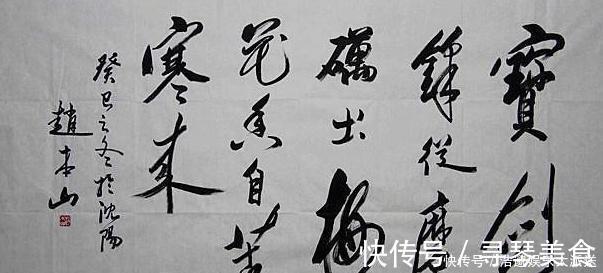 寶劍
鋒從磨
礪出梅
花香自苦
寒来
癸巳之冬於沈陽
趙本山
快传号 / 寻琴美食